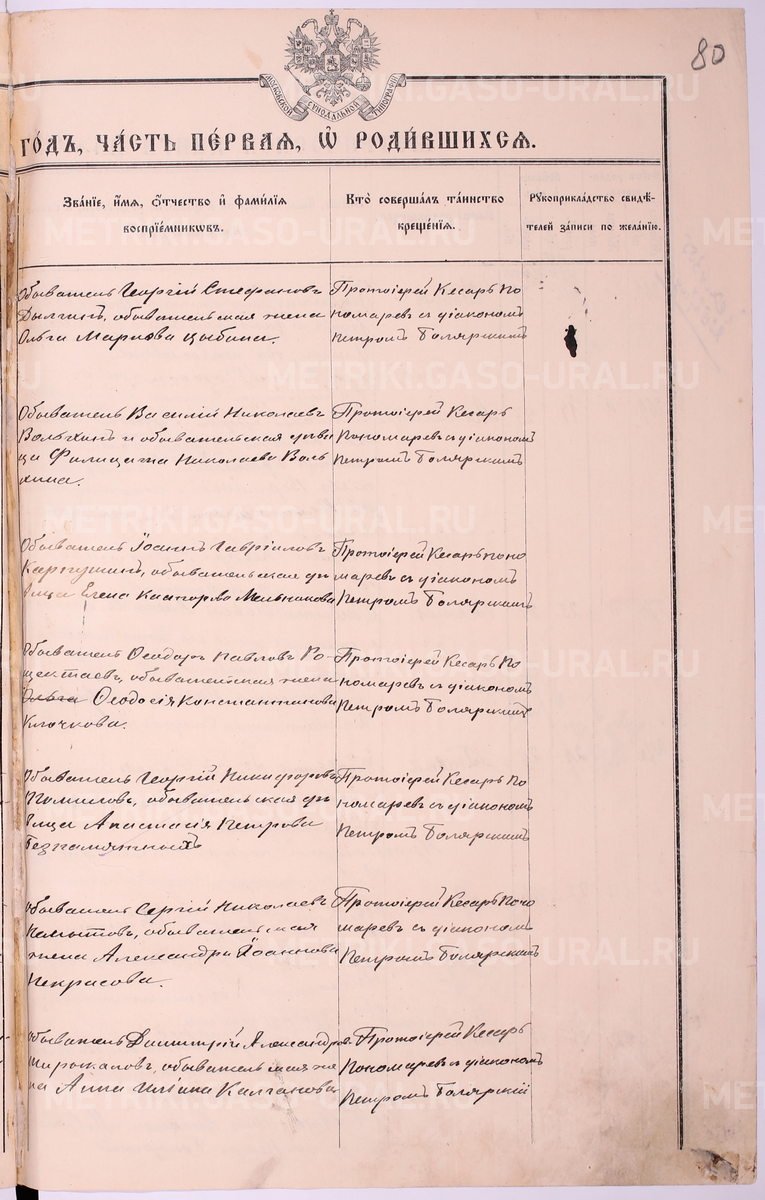 80
МОСКОВСКОЙ СѴНОДАЛЬНОЙ ТИПОГРАФІИ
ГО́ДЪ, ЧА́СТЬ ПЕ́РВАЯ, Ѽ РОДИ́ВШИХСЯ.
Зва́нїе, и҆́мя, ѻ҆́тчество и҆ фами́лїя
воспрїе́мникѡвъ.
Кто̀ соверша́лъ та́инство
креще́нїя.
Рꙋкоприкла́дство свидѣ́-
телей за́писи по жела́нїю.
Обыватель Георгій Стефановъ
Дылгинъ, обывательская жена
Ольга Маркова Цыбина.
Протоіерей Кесарь По
номаревъ съ діакономъ
Петромъ Боляркимъ
Обыватель Василій Николаевъ
Вольхинъ и обывательская дѣви
ца Филицата Николаева Воль
хина.
Протоіерей Кесарь
Пономаревъ съ діакономъ
Петромъ Боляркимъ
Обыватель Іоаннъ Гавріиловъ
обывательская дѣ
вица Елена Каторова Мельникова
Протоіерей Кесарь Поно
маревъ съ діакономъ
Петромъ Боляркимъ
Обыватель Ѳеодоръ Павловъ Ро-
щектаевъ, обывательская жена
Ольга Ѳеодосія Константинова
Клочкова.
Протоіерей Кесарь По
номаревъ съ діакономъ
Петромъ Боляркимъ
Обыватель Георгій Никифоровъ
Помиловъ, обывательская дѣ
вица Анастасія Петрова
Безпамятныхъ
Протоіерей Кесарь По
номаревъ съ діакономъ
Петромъ Боляркимъ
Обыватель Сергій Николаевъ
обывательская
жена Александра Іоаннова
Некрасова.
Протоіерей Кесарь Поно
маревъ съ діакономъ
Петромъ Боляркимъ
Обыватель Димитрій Александров
обывательская же
на Анна Иліина Калганова
Протоіерей Кесарь
Пономаревъ съ діакономъ
Петромъ Болярскій
METRIKI.GASO-URAL.RU